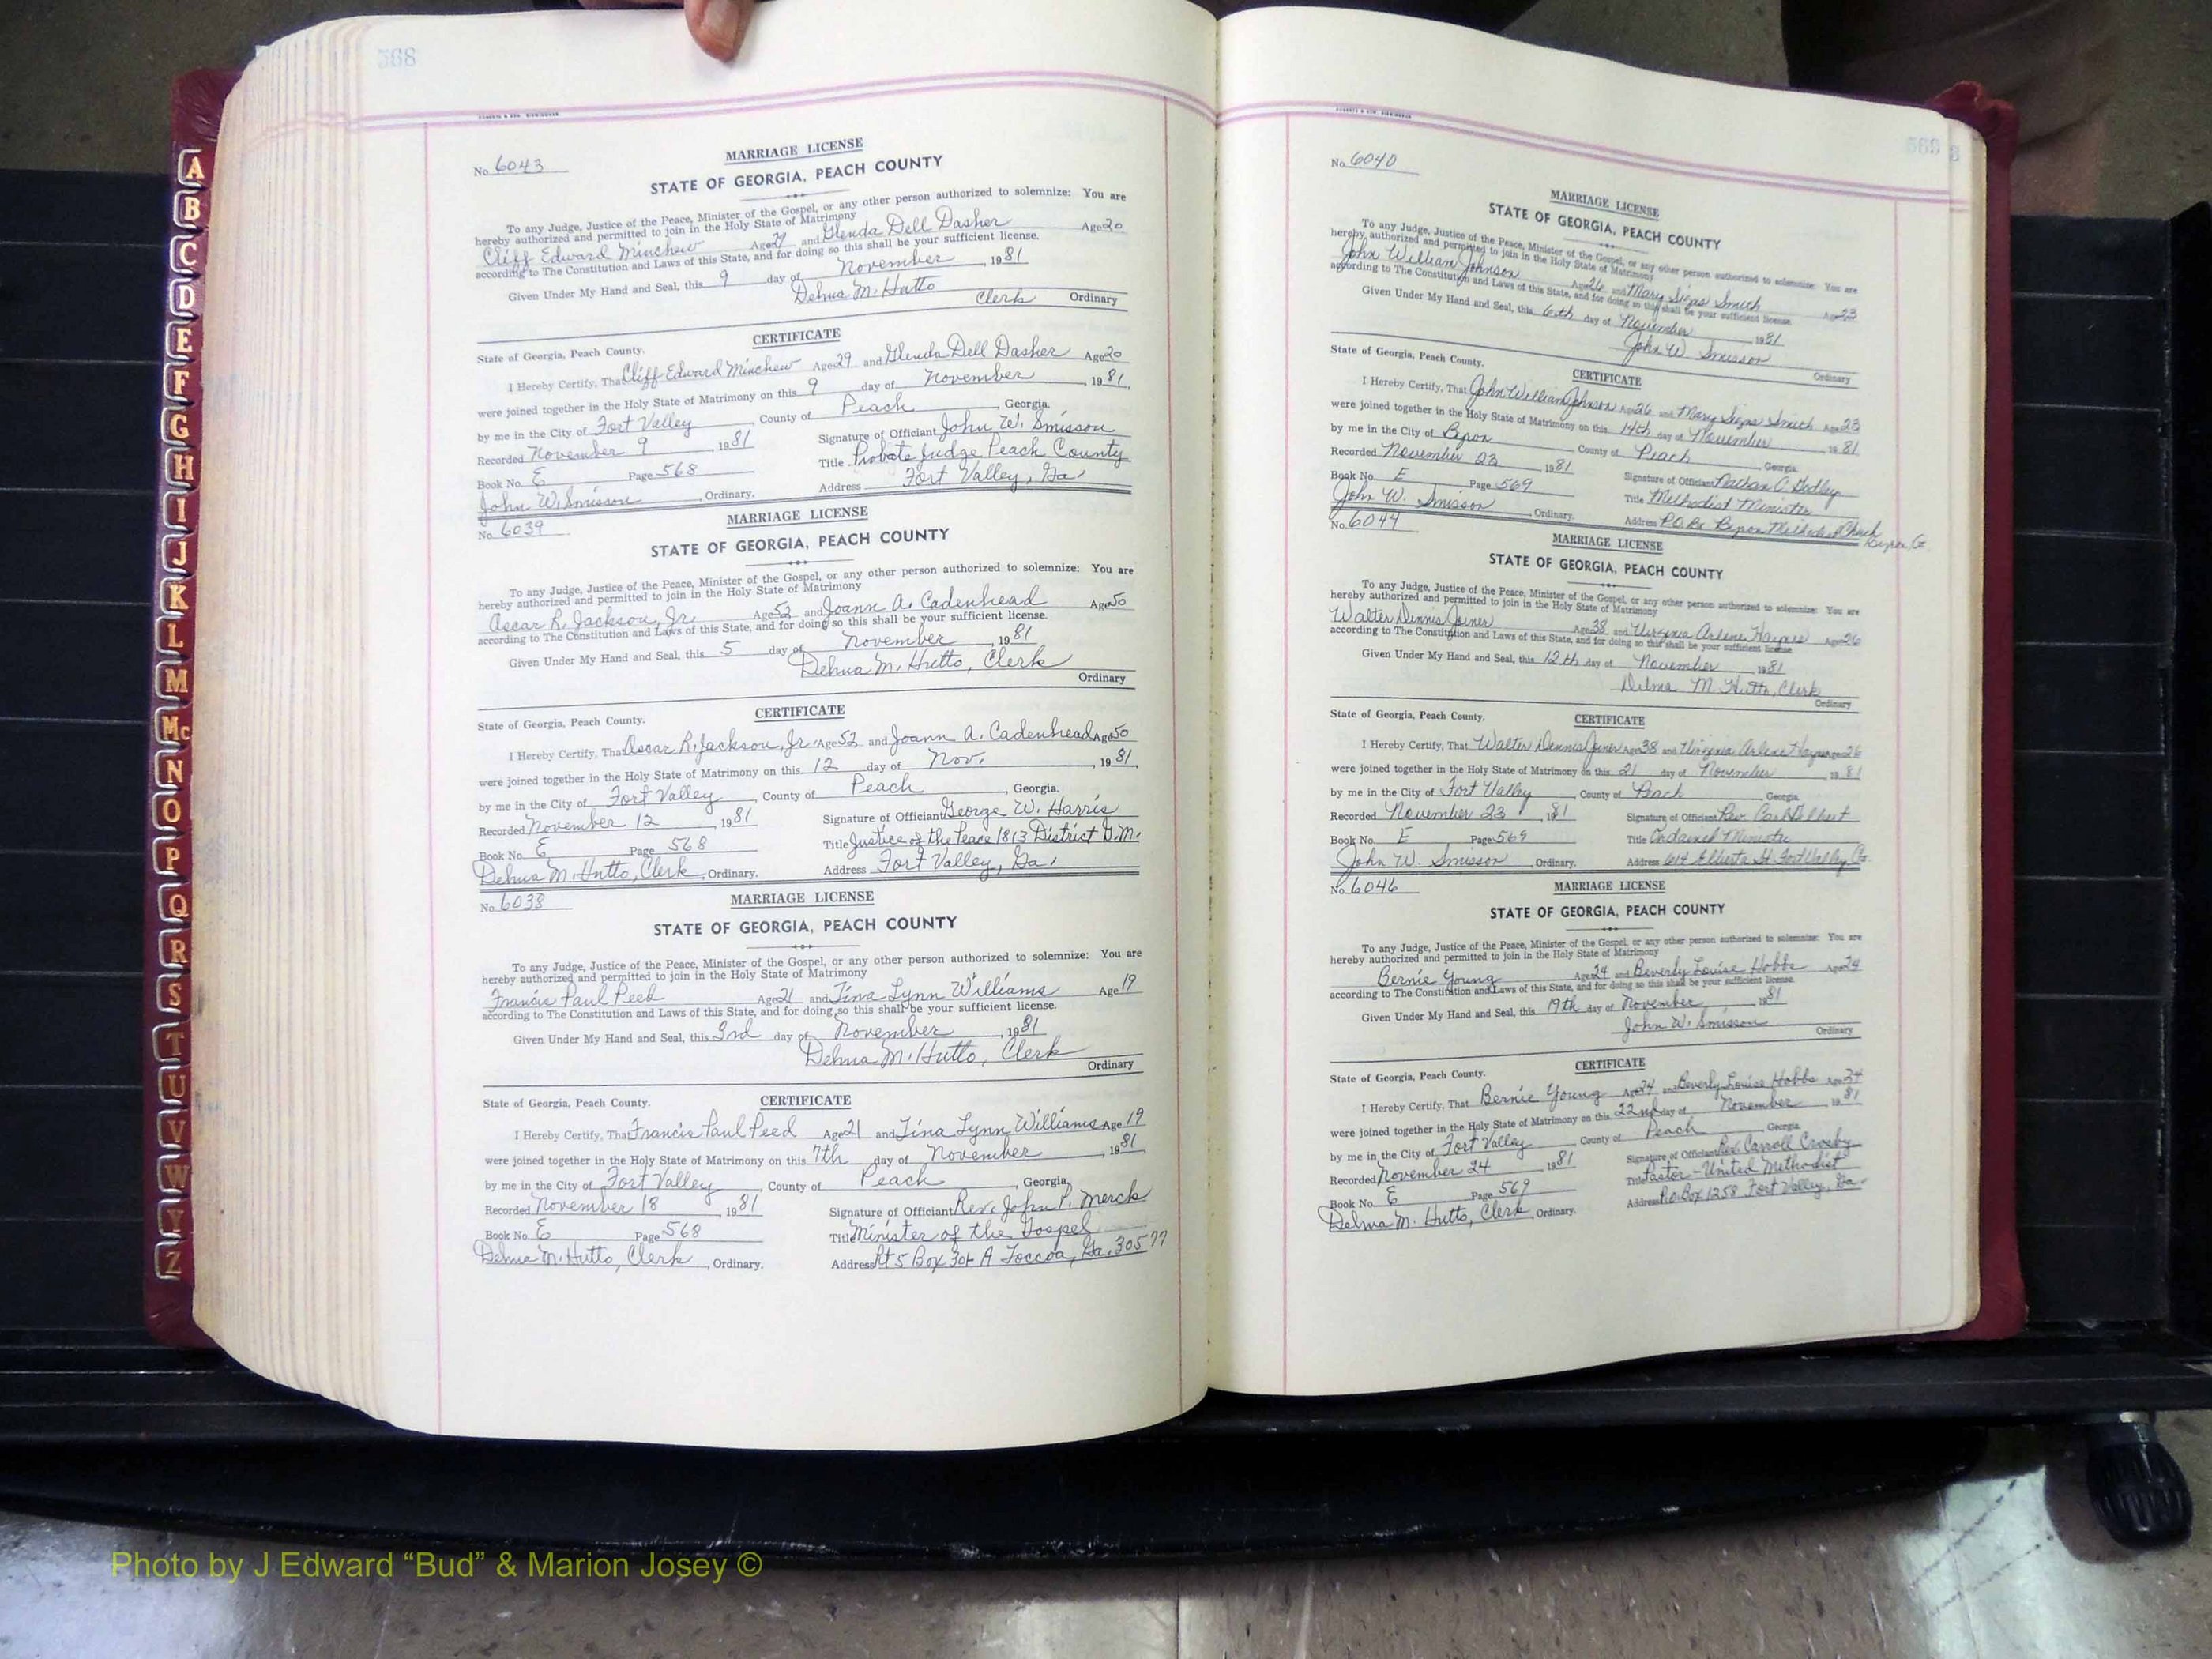 568
MARRIAGE LICENSE
No. 6043
STATE OF GEORGIA, PEACH COUNTY
To any Judge, Justice of the Peace, Minister of the Gospel, or any other person authorized to solemnize: You are
hereby authorized and permitted to join in the Holy State of Matrimony
Cliff Edward Minchew Age 29 and Glenda Dell Dasher Age 20
according to The Constitution and Laws of this State, and for doing so this shall be your sufficient license.
Given Under My Hand and Seal, this 9 day of November, 1981
Delma M. Hutto
Clerk Ordinary
CERTIFICATE
State of Georgia, Peach County.
I Hereby Certify, That Cliff Edward Minchew Age 29 and Glenda Dell Dasher Age 20
were joined together in the Holy State of Matrimony on this 9 day of November, 1981,
by me in the City of Fort Valley County of Peach, Georgia.
Recorded November 9 1981 Signature of Officiant John W. Smisson
Book No. E Page 568 Title Probate Judge Peach County
John W. Smisson, Ordinary. Address Fort Valley, Ga.
MARRIAGE LICENSE
No. 6039
STATE OF GEORGIA, PEACH COUNTY
To any Judge, Justice of the Peace, Minister of the Gospel, or any other person authorized to solemnize: You are
hereby authorized and permitted to join in the Holy State of Matrimony
Oscar R. Jackson, Jr. Age 52 and Joann A. Cadenhead Age 50
according to The Constitution and Laws of this State, and for doing so this shall be your sufficient license.
Given Under My Hand and Seal, this 5 day of November, 1981
Delma M. Hutto, Clerk
Ordinary
CERTIFICATE
State of Georgia, Peach County.
I Hereby Certify, That Oscar R. Jackson, Jr. Age 52 and Joann A. Cadenhead Age 50
were joined together in the Holy State of Matrimony on this 12 day of Nov., 1981,
by me in the City of Fort Valley, County of Peach, Georgia.
Recorded November 12, 1981 Signature of Officiant George W. Harris
Book No. E Page 568 Title Justice of the Peace 1813 District G.M.
Delma M. Hutto, Clerk, Ordinary. Address Fort Valley, Ga.
MARRIAGE LICENSE
No. 6038
STATE OF GEORGIA, PEACH COUNTY
To any Judge, Justice of the Peace, Minister of the Gospel, or any other person authorized to solemnize: You are
hereby authorized and permitted to join in the Holy State of Matrimony
Francis Paul Peed Age 21 and Tina Lynn Williams Age 19
according to The Constitution and Laws of this State, and for doing so this shall be your sufficient license.
Given Under My Hand and Seal, this 3rd day of November, 1981
Delma M. Hutto, Clerk
Ordinary
CERTIFICATE
State of Georgia, Peach County.
I Hereby Certify, That Francis Paul Peed Age 21 and Tina Lynn Williams Age 19
were joined together in the Holy State of Matrimony on this 7th day of November, 1981
by me in the City of Fort Valley, County of Peach, Georgia,
Recorded November 18 1981 Signature of Officiant Rev. John P. Merck
Book No. E Page 568 Title Minister of the Gospel
Delma M. Hutto, Clerk, Ordinary. Address Rt 5 Box A Toccoa, Ga. 30577
No. 6040
MARRIAGE LICENSE
STATE OF GEORGIA, PEACH COUNTY
To any Judge, Justice of the Peace, Minister of the Gospel, or any other person authorized to solemnize: You are
hereby authorized and permitted to join in the Holy State of Matrimony
John William Johnson Age 26 and Mary Smith Age 23
according to The Constitution and Laws of this State, and for doing so this shall be your sufficient license.
Given Under My Hand and Seal, this 6th day of November 1981
John W. Smisson
Ordinary
State of Georgia, Peach County.
CERTIFICATE
I Hereby Certify, That John William Johnson Age 26 and Mary Smith Age 23
were joined together in the Holy State of Matrimony on this 14th day of November 1981
by me in the City of Byron County of Peach, Georgia
Recorded November 23, 1981 Signature of Officiant Nathan C.
Book No. E Page 569 Title Methodist Minister
John W. Smisson, Ordinary. Address P.O. Bx Byron Methodist Church
Byron, G
No. 6044
MARRIAGE LICENSE
STATE OF GEORGIA, PEACH COUNTY
To any Judge, Justice of the Peace, Minister of the Gospel, or any other person authorized to solemnize: You are
hereby authorized and permitted to join in the Holy State of Matrimony
Walter Dennis Joiner Age 38 and Virginia Arlene Haynes Age 26
according to The Constitution and Laws of this State, and for doing so this shall be your sufficient license.
Given Under My Hand and Seal, this 12th day of November, 1981
Delma M. Hutto, Clerk
Ordinary
State of Georgia, Peach County.
CERTIFICATE
I Hereby Certify, That Walter Dennis Joiner Age 38 and Virginia Arlene Haynes Age 26
were joined together in the Holy State of Matrimony on this 21 day of November 1981
by me in the City of Fort Valley, County of Peach, Georgia
Recorded November 23, 1981 Signature of Officiant Rev.
Book No. E Page 569 Title Ordained Minister
John W. Smisson, Ordinary. Address 614 Elberta St. Fort Valley Ga
No. 6046
MARRIAGE LICENSE
STATE OF GEORGIA, PEACH COUNTY
To any Judge, Justice of the Peace, Minister of the Gospel, or any other person authorized to solemnize: You are
hereby authorized and permitted to join in the Holy State of Matrimony
Bernie Young Age 24 and Beverly Louise Hobbs Age 24
according to The Constitution and Laws of this State, and for doing so this shall be your sufficient license.
Given Under My Hand and Seal, this 19th day of November, 1981
John W. Smisson
Ordinary
CERTIFICATE
State of Georgia, Peach County.
I Hereby Certify, That Bernie Young Age 24 and Beverly Louise Hobbs Age 24
were joined together in the Holy State of Matrimony on this 22nd day of November 1981
by me in the City of Fort Valley, County of Peach, Georgia
Recorded November 24, 1981 Signature of Officiant Rev. Carroll Crosby
Book No. E Page 569 Title Pastor - United Methodist
Delma M. Hutto, Clerk, Ordinary. Address P.O. Box 1258 Fort Valley, Ga.
A
B
C
D
E
F
G
H
I
J
K
L
M
Mc
N
O
P
Q
R
S
T
U
V
W
Y
Z
Photo by J Edward “Bud” & Marion Josey ©